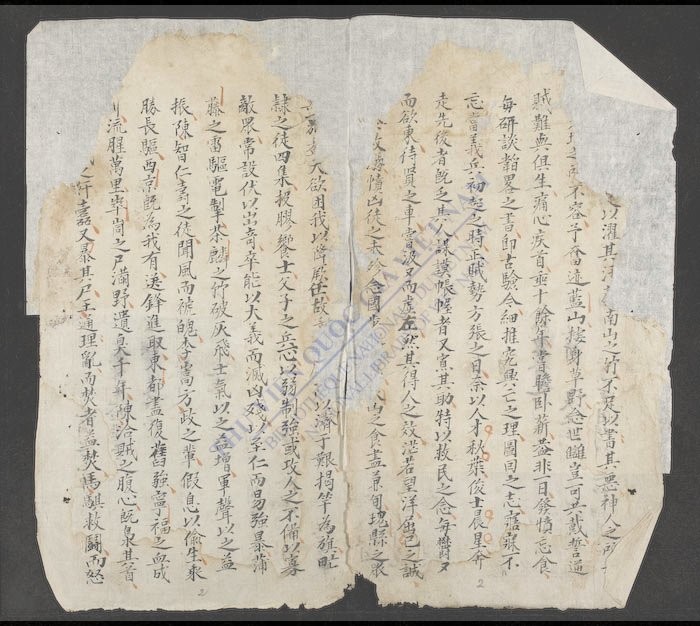 以濯其汚 南山之竹不足以書其惡神人之所
地之所不容予奮迹藍山棲身草野念世讎豈可共戴誓逆
賊難與俱生痛心疾首垂十餘年嘗膽卧薪蓋非一日發憤忘食
每研談韜畧之書即古驗今細推究興亡之理圖回之志寤寐不
忘當義兵初起之時正賊勢方張之日奈以人才秋葉俊士晨星奔
走先後者既乏其人謀謨帷幄者又寡其助特以救民之念每鬱又
而欲東待賢之車當汲又而虛左然其得人之效茫若望洋屈己之誠
於救溺憤凶徒之未殄念國步 山之食盡兼旬瑰縣之眾
天欲困我以降厥任故 以濟于艱揭竿為旗氓
隸之徒四集投膠饗士父子之兵心以弱制強或攻人之不備以寡
敵眾常設伏以出奇卒能以大義而滅凶殘以至仁而易強暴蒲
藤之雷驅電掣茶麟之竹破灰飛士氣以之益增軍聲以之益
振陳智仁壽之徒聞風而褫魄李安方政之輩假息以偷生乘
勝長驅西京既為我有選鋒進取東都盡復舊強寧福之血成
川流腥萬里崒崗之尸滿野遺臭千年陳洽賊之腹心既梟其首
之奸蠹又暴其尸王通理亂而焚者益焚馬騏救鬪而怒
2
2
THƯ VIỆN QUỐC GIA VIỆT NAM